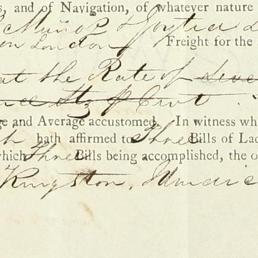 s, and of Navigation, of whatever nature
Muñoz &
London Freight for the
at the Rate of
Stg p Cent
ge and Average accustomed. In witness wh
hath affirmed to Three Bills of Lad
which Three Bills being accomplished, the o
Kingston, Jamaic